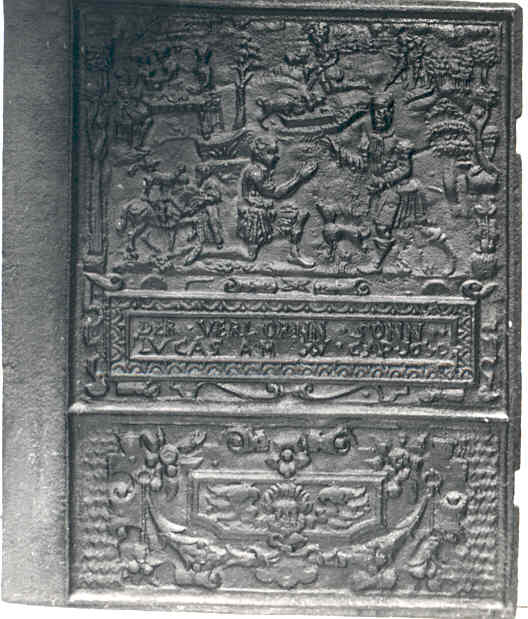 DER VERLORNN SONN
LVCAS AM XV CAP